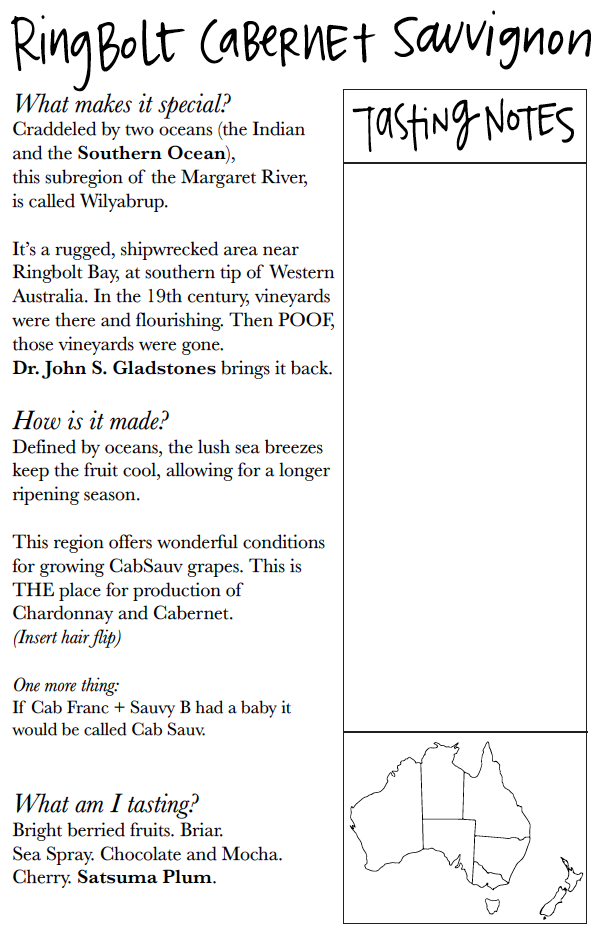 RingBolt Cabernet Sauvignon
What makes it special?
Craddeled by two oceans (the Indian
and the Southern Ocean),
this subregion of the Margaret River,
is called Wilyabrup.
It's a rugged, shipwrecked area near
Ringbolt Bay, at southern tip of Western
Australia. In the 19th century, vineyards
were there and flourishing. Then POOF,
those vineyards were gone.
Dr. John S. Gladstones brings it back.
How is it made?
Defined by oceans, the lush sea breezes
keep the fruit cool, allowing for a longer
ripening season.
This region offers wonderful conditions
for growing CabSauv grapes. This is
THE place for production of
Chardonnay and Cabernet.
(Insert hair flip)
One more thing:
If Cab Franc + Sauvy B had a baby it
would be called Cab Sauv.
What am I tasting?
Bright berried fruits. Briar.
Sea Spray. Chocolate and Mocha.
Cherry. Satsuma Plum.
Tasting Notes